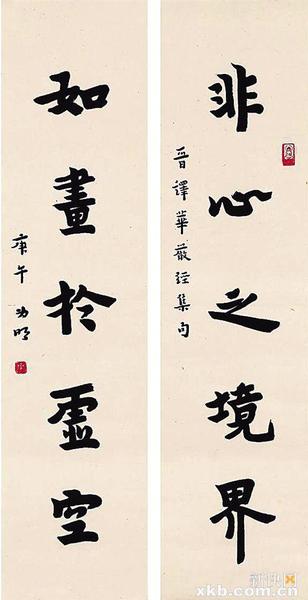 非心之境界
晋譯華嚴經集句
如畫於虛空
庚午 功明
新快网
xkb.com.cn